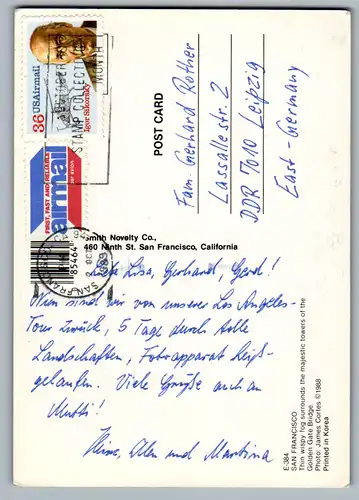 36 USAirmail
Igor Sikorsky
OCTOBER
STAMP COLLECTING
MONTH
FIRST, FAST AND RELIABLE
airmail
par avion
85464
SAN FRAN
OCT
1989
POST CARD
Fam. Gerhard Rother
Lassallestr. 2
DDR 7010 Leipzig
East-Germany
Smith Novelty Co.,
460 Ninth St. San Francisco, California
Liebe Lisa, Gerhard, Gerd!
Nun sind wir von unserer Los Angeles-
Tour zurück, 5 Tage durch tolle
Landschaften, Fotoapparat heiß-
gelaufen. Viele Grüße auch an
Mutti!
Heinz, und Martina
E-384
SAN FRANCISCO
Thin wispy fog surrounds the majestic towers of the
Golden Gate Bridge.
Photo: James Cortes ©1988
Printed in Korea